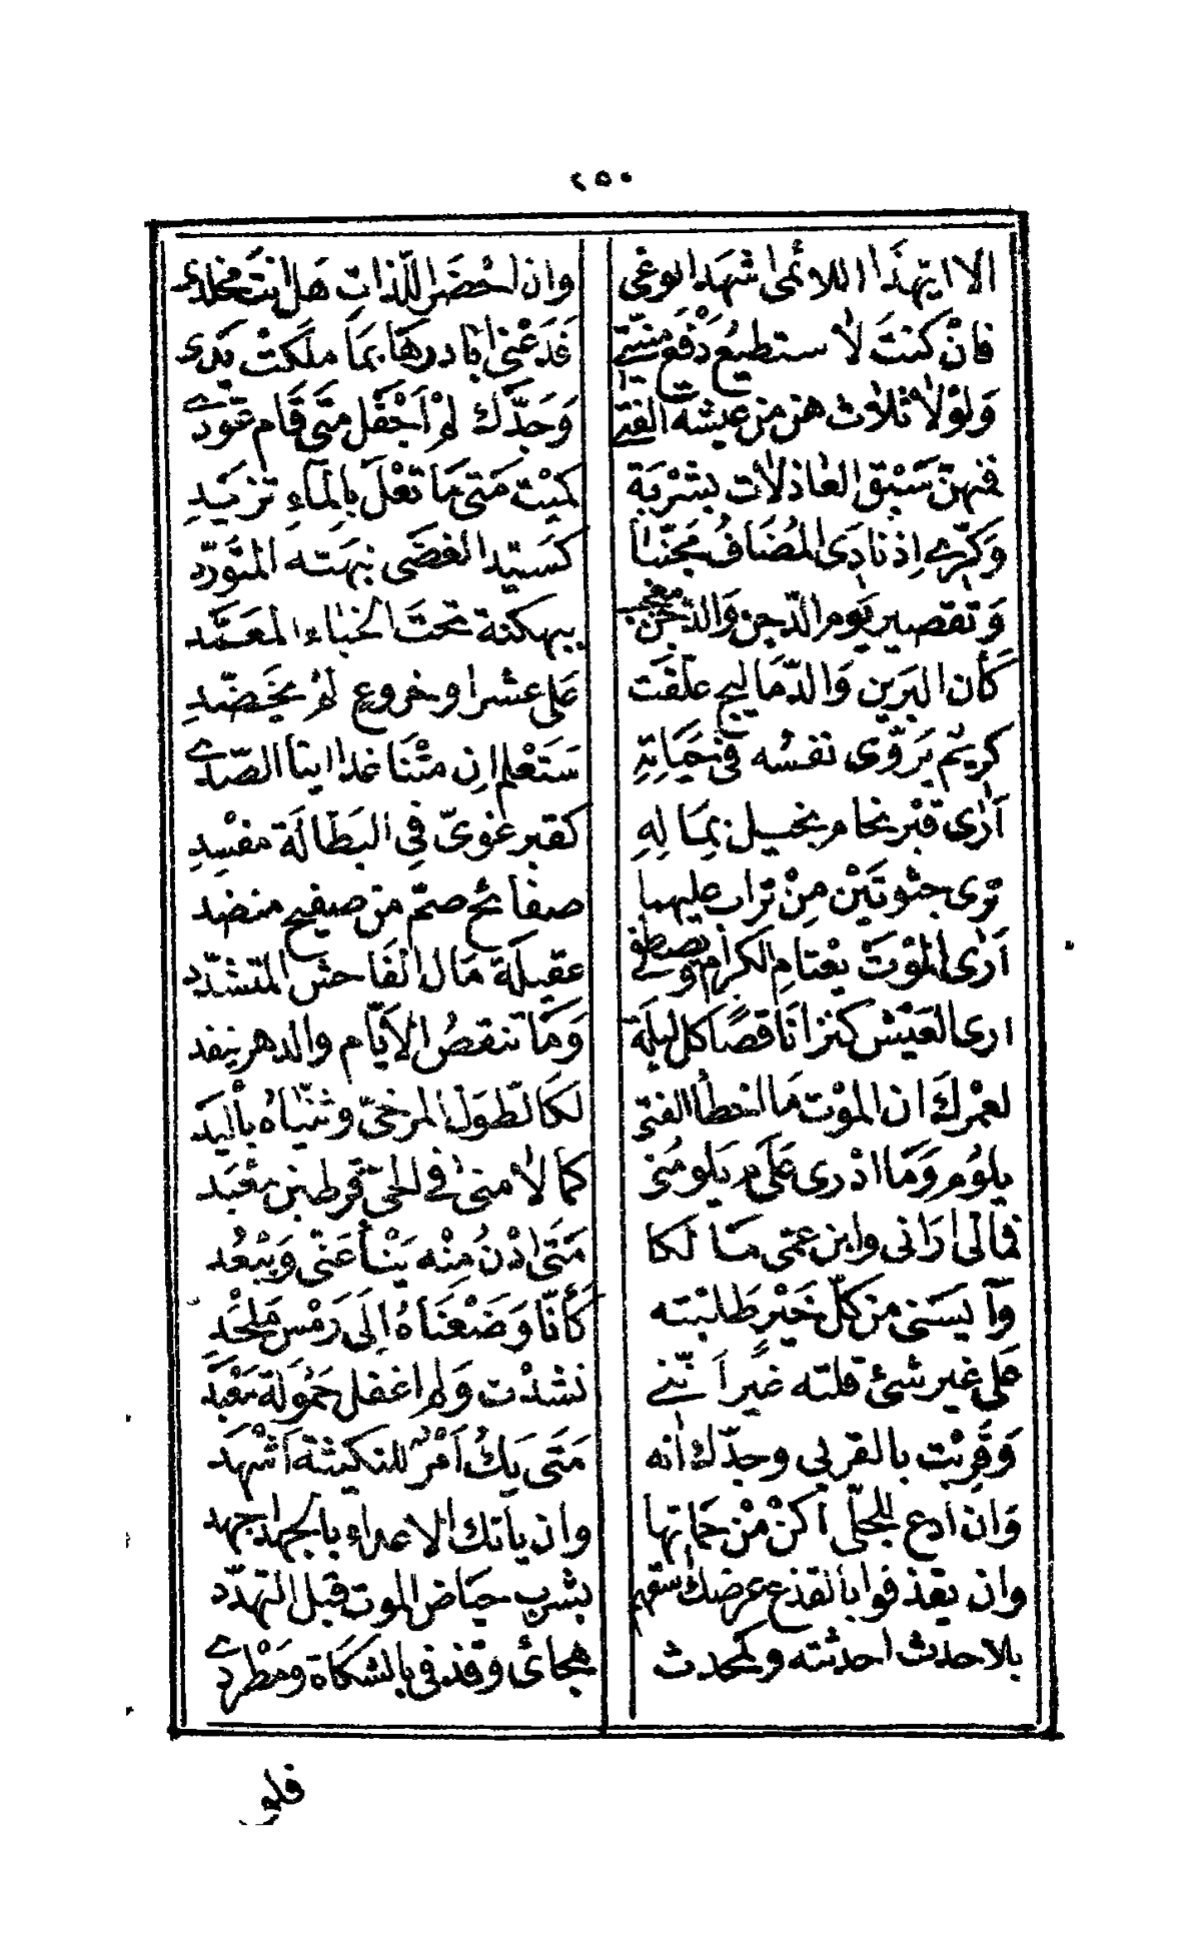 ٢٥٠
الا ايهذا اللائمى اشهد الوغى وان احضر اللذات هل انت مخلدى
فان كنت لا ستطيع دفع منيتى فدعنى ابادرها بما ملكت يدى
ولولا ثلاث هن من عيشة الفتى وجدك لم احفل متى قام عودى
فمنهن سبق العاذلات بشربة كميت متى ما تعل بالماء تزبد
وكرى اذ نادى المضاف مجنبا كسيد الغضى نبهته المتورد
وتقصير يوم الدجن والدجن معجب ببهكنة تحت الخباء المعمد
كأن البرين والدماليج علقت على عشر او خروع لم يخضد
كريم يروى نفسه فى حياته ستعلم ان متنا غدا اينا الصدى
أرى قبر نحام بخيل بماله كقبر غوى فى البطالة مفسد
ترى جثوتين من تراب عليهما صفائح صم من صفيح منضد
أرى الموت يعتام الكرام ويصطفى عقيلة مال الفاحش المتشدد
ارى العيش كنزا ناقصا كل ليلة وما تنقص الأيام والدهر ينفد
لعمرك ان الموت ما اخطأ الفتى لكالطول المرخى وثنياه باليد
يلوم وما ادرى على م يلومنى كما لامنى فى الحى قرط بن معبد
فمالى أرانى وابن عمى مالكا متى ادن منه ينأ عنى ويبعد
وآيسنى من كل خير طلبته كأنا وضعناه الى رمس ملحد
على غير شئ قلته غير أننى نشدت ولم اغفل حمولة معبد
وقربت بالقربى وجدك أنه متى يك أمر للنكيثة أشهد
وان ادع للجلى أكن من حماتها وان ياتك الاعداء بالجهد اجهد
وان يقذفوا بالقذع عرضك اسقهم بشرب حياض الموت قبل التهدد
بلا حدث احدثته وكمحدث هجائى وقذفى بالشكاة ومطردى
فلو